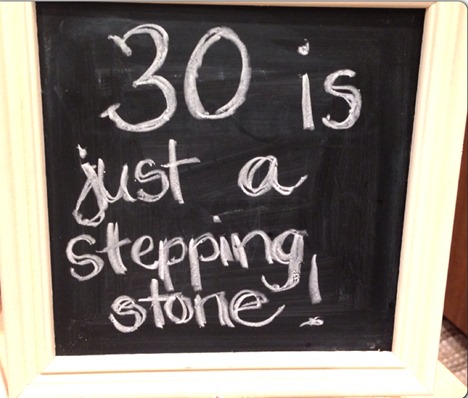 30 is
just a
stepping
stone!